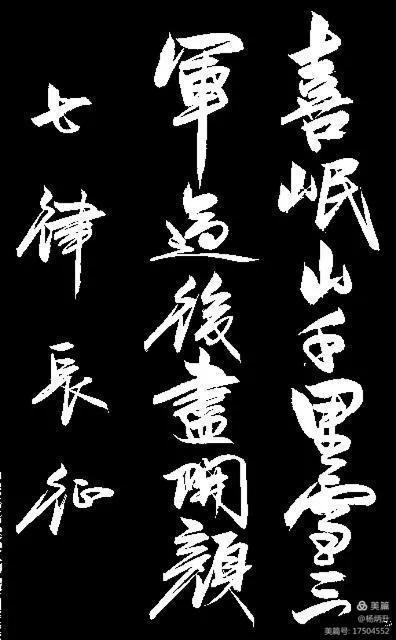 喜岷山千里雪三
軍過後盡開顏
七律長征
美篇
@杨炳升
美篇号: 17504552